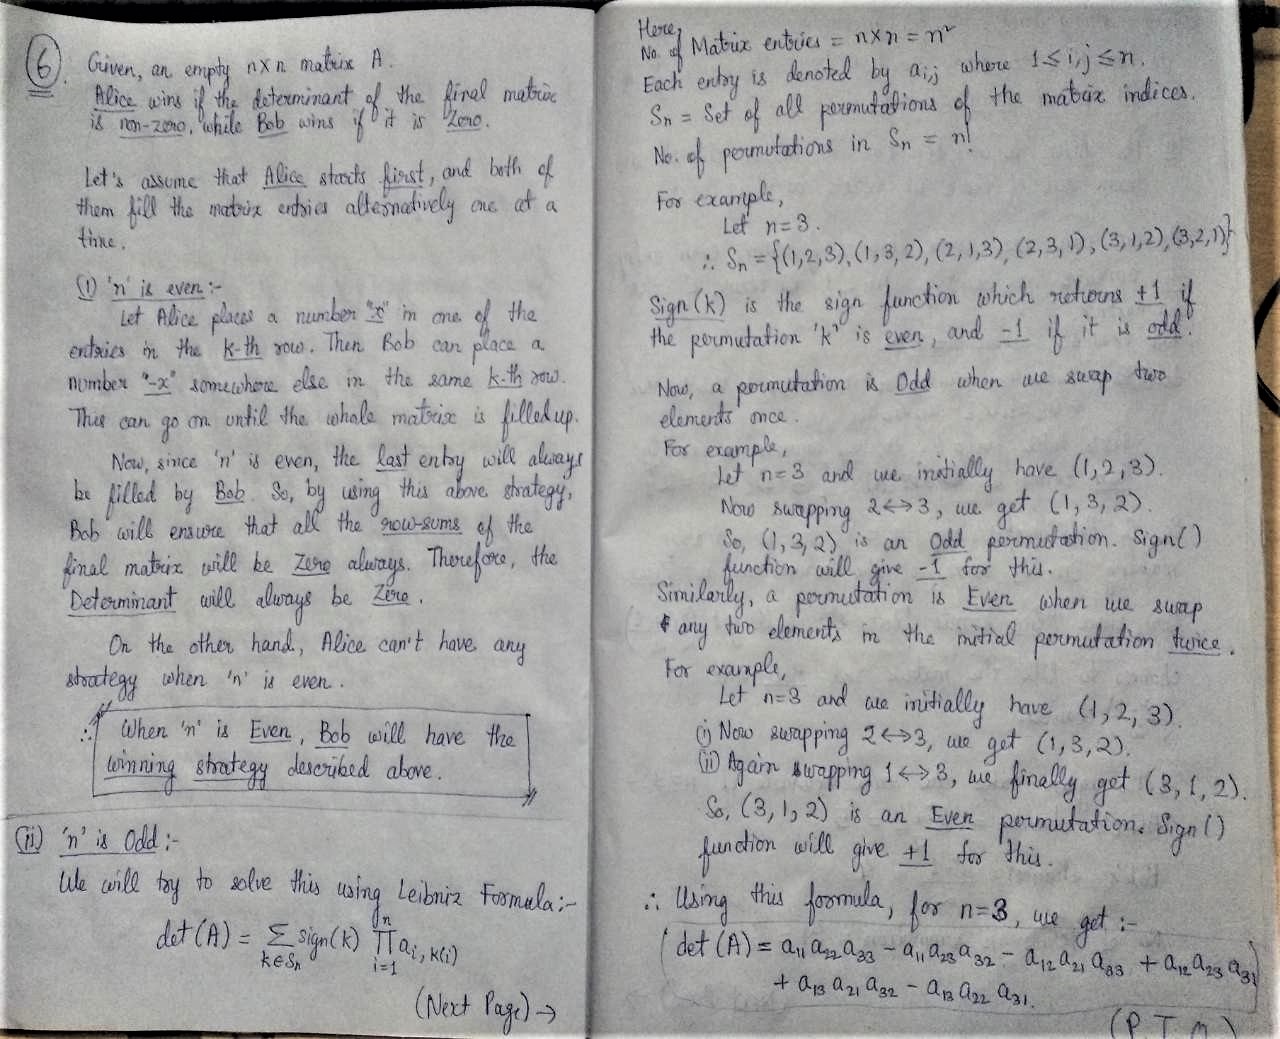 6. Given, an empty n×n matrix A.
Alice wins if the determinant of the final matrix
is non-zero, while Bob wins if it is Zero.
Let's assume that Alice starts first, and both of
them fill the matrix entries alternatively one at a
time.
(i) 'n' is even :-
Let Alice places a number "x" in one of the
entries in the k-th row. Then Bob can place a
number "-x" somewhere else in the same k-th row.
This can go on until the whole matrix is filled up.
Now, since 'n' is even, the last entry will always
be filled by Bob. So, by using this above strategy,
Bob will ensure that all the row-sums of the
final matrix will be Zero always. Therefore, the
Determinant will always be Zero.
On the other hand, Alice can't have any
strategy when 'n' is even.
∴ When 'n' is Even, Bob will have the
winning strategy described above.
(ii) 'n' is Odd :-
We will try to solve this using Leibniz Formula :-
det(A) = Σ_{k∈Sₙ} sign(k) ∏_{i=1}^{n} a_{i, k(i)}
(Next Page) →
Here,
No. of Matrix entries = n×n = n²
Each entry is denoted by a_{i,j} where 1≤i,j≤n.
Sₙ = Set of all permutations of the matrix indices.
No. of permutations in Sₙ = n!
For example,
Let n=3.
∴ Sₙ = {(1,2,3), (1,3,2), (2,1,3), (2,3,1), (3,1,2), (3,2,1)}
Sign(k) is the sign function which returns +1 if
the permutation 'k' is even, and -1 if it is odd.
Now, a permutation is Odd when we swap two
elements once.
For example,
Let n=3 and we initially have (1,2,3).
Now swapping 2↔3, we get (1,3,2).
So, (1,3,2) is an Odd permutation. Sign()
function will give -1 for this.
Similarly, a permutation is Even when we swap
any two elements in the initial permutation twice.
For example,
Let n=3 and we initially have (1,2,3).
(i) Now swapping 2↔3, we get (1,3,2).
(ii) Again swapping 1↔3, we finally get (3,1,2).
So, (3,1,2) is an Even permutation. Sign()
function will give +1 for this.
∴ Using this formula, for n=3, we get :-
det(A) = a₁₁a₂₂a₃₃ - a₁₁a₂₃a₃₂ - a₁₂a₂₁a₃₃ + a₁₂a₂₃a₃₁
+ a₁₃a₂₁a₃₂ - a₁₃a₂₂a₃₁.
(P.T.O)